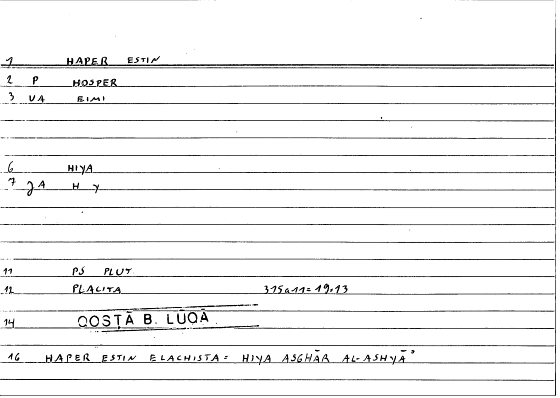 1 HAPER ESTIN
2 P HOSPER
3 VA EIMI
6 HIYA
7 JA H Y
11 PS PLUT
12 PLACITA 315a11=19.13
14 QOSṬĀ B. LŪQĀ
16 HAPER ESTIN ELACHISTA = HIYA ASGHĀR AL-ASHYĀʾ